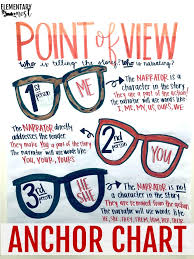 ELEMENTARY
nest
POINT of VIEW
Who is telling the story? Who is narrating?
1st
person
ME
The NARRATOR is a
character in the story
They are a part of the action!
The narrator will use words like
I, ME, MY, US, OURS, WE
The NARRATOR directly
addresses the reader.
They make YOU a part of the story
The narrator will use words like
YOU, YOUR, YOURS
2nd
person
YOU
3rd
person
HE
SHE
The NARRATOR is not
a character in the story
They are
from the action
The narrator will use words like
ANCHOR CHART